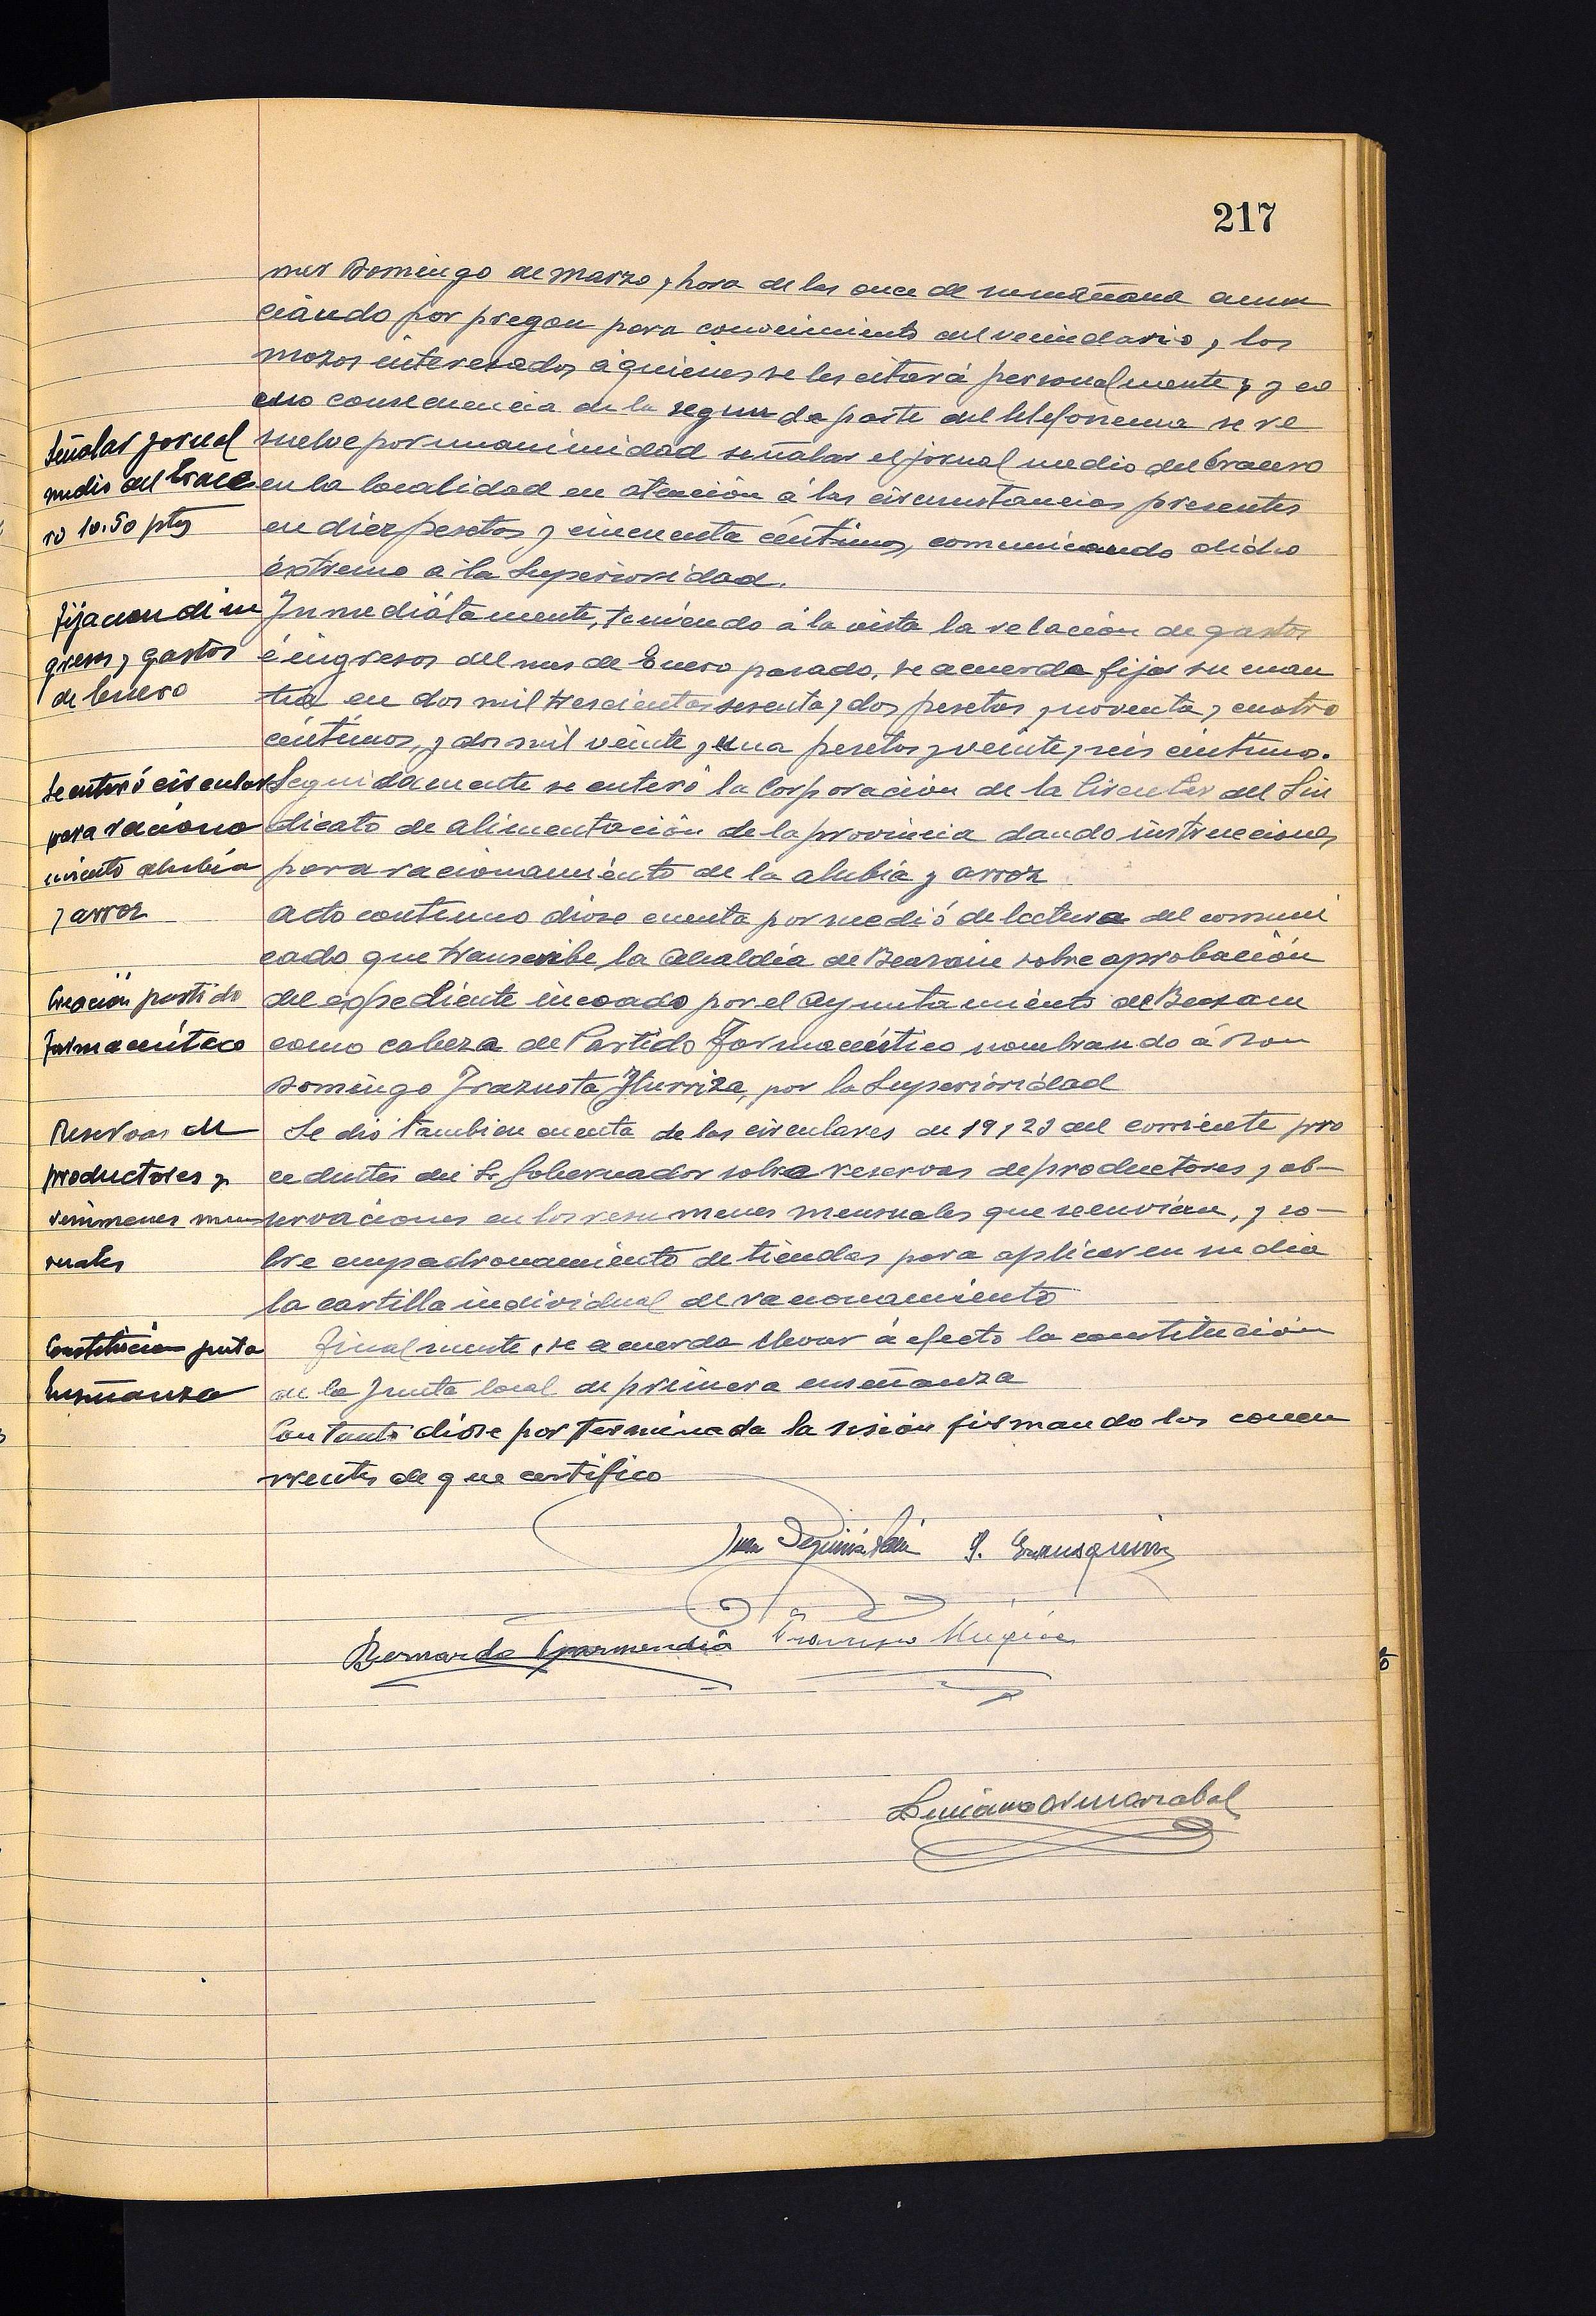 217
mer Domingo de Marzo y hora de las once de su mañana anun
ciando por pregon para conocimiento del vecindario y los
mozos interesados á quienes se les citará personalmente y y co
mo consecuencia de la segunda parte del telefonema se re
Señalar jornal
suelve por unanimidad señalar el jornal medio del bracero
medio del brace
en la localidad en atención á las circunstancias presentes
ro 10.50 ptas
en diez pesetas y cincuenta céntimos, comunicando dicho
extremo a la Superioridad.
Fijacion de in
Inmediátamente, teniendo á la vista la relación de gastos
gresos y gastos
é ingresos del mes de Enero pasado, se acuerda fijar su cuan
de Enero
tia en dos mil trescientas sesenta y dos pesetas y noventa y cuatro
céntimos, y dos mil veinte y una pesetas y veinte y seis céntimos.
Se enteró circular
Seguidamente se enteró la Corporación de la Circular del Sin
para raciona
dicato de alimentación de la provincia dando instrucciones
miento alubia
para racionamiento de la alubia y arroz
y arroz
Acto continuo diose cuenta por medió de lectura del comuni
cado que transcribe la Alcaldía de Beasain sobre aprobación
Creación partido
del expediente incoado por el Ayuntamiento de Beasain
Farmacéutico
como cabeza de Partido Farmacéutico nombrando á Don
Domingo Irazusta Iturriza, por la Superioridad
Reservas de
Se dió tambien cuenta de las circulares de 19 y 23 del corriente pro
productores y
cedentes del Sr Gobernador sobre reservas de productores y ob-
resúmenes men
servaciones en los resumenes mensuales que se envian, y so-
suales
bre empadronamiento de tiendas para aplicar en su dia
la cartilla individual de racionamiento
Constitución junta
Finalmente, se acuerda llevar á efecto la constitución
Enseñanza
de la Junta local de primera enseñanza
Con tanto diose por terminada la sesión firmando los concu
rrentes de que certifico
Juan
Bernardo Garmendia Francisco Mugica
Luciano Ormazabal